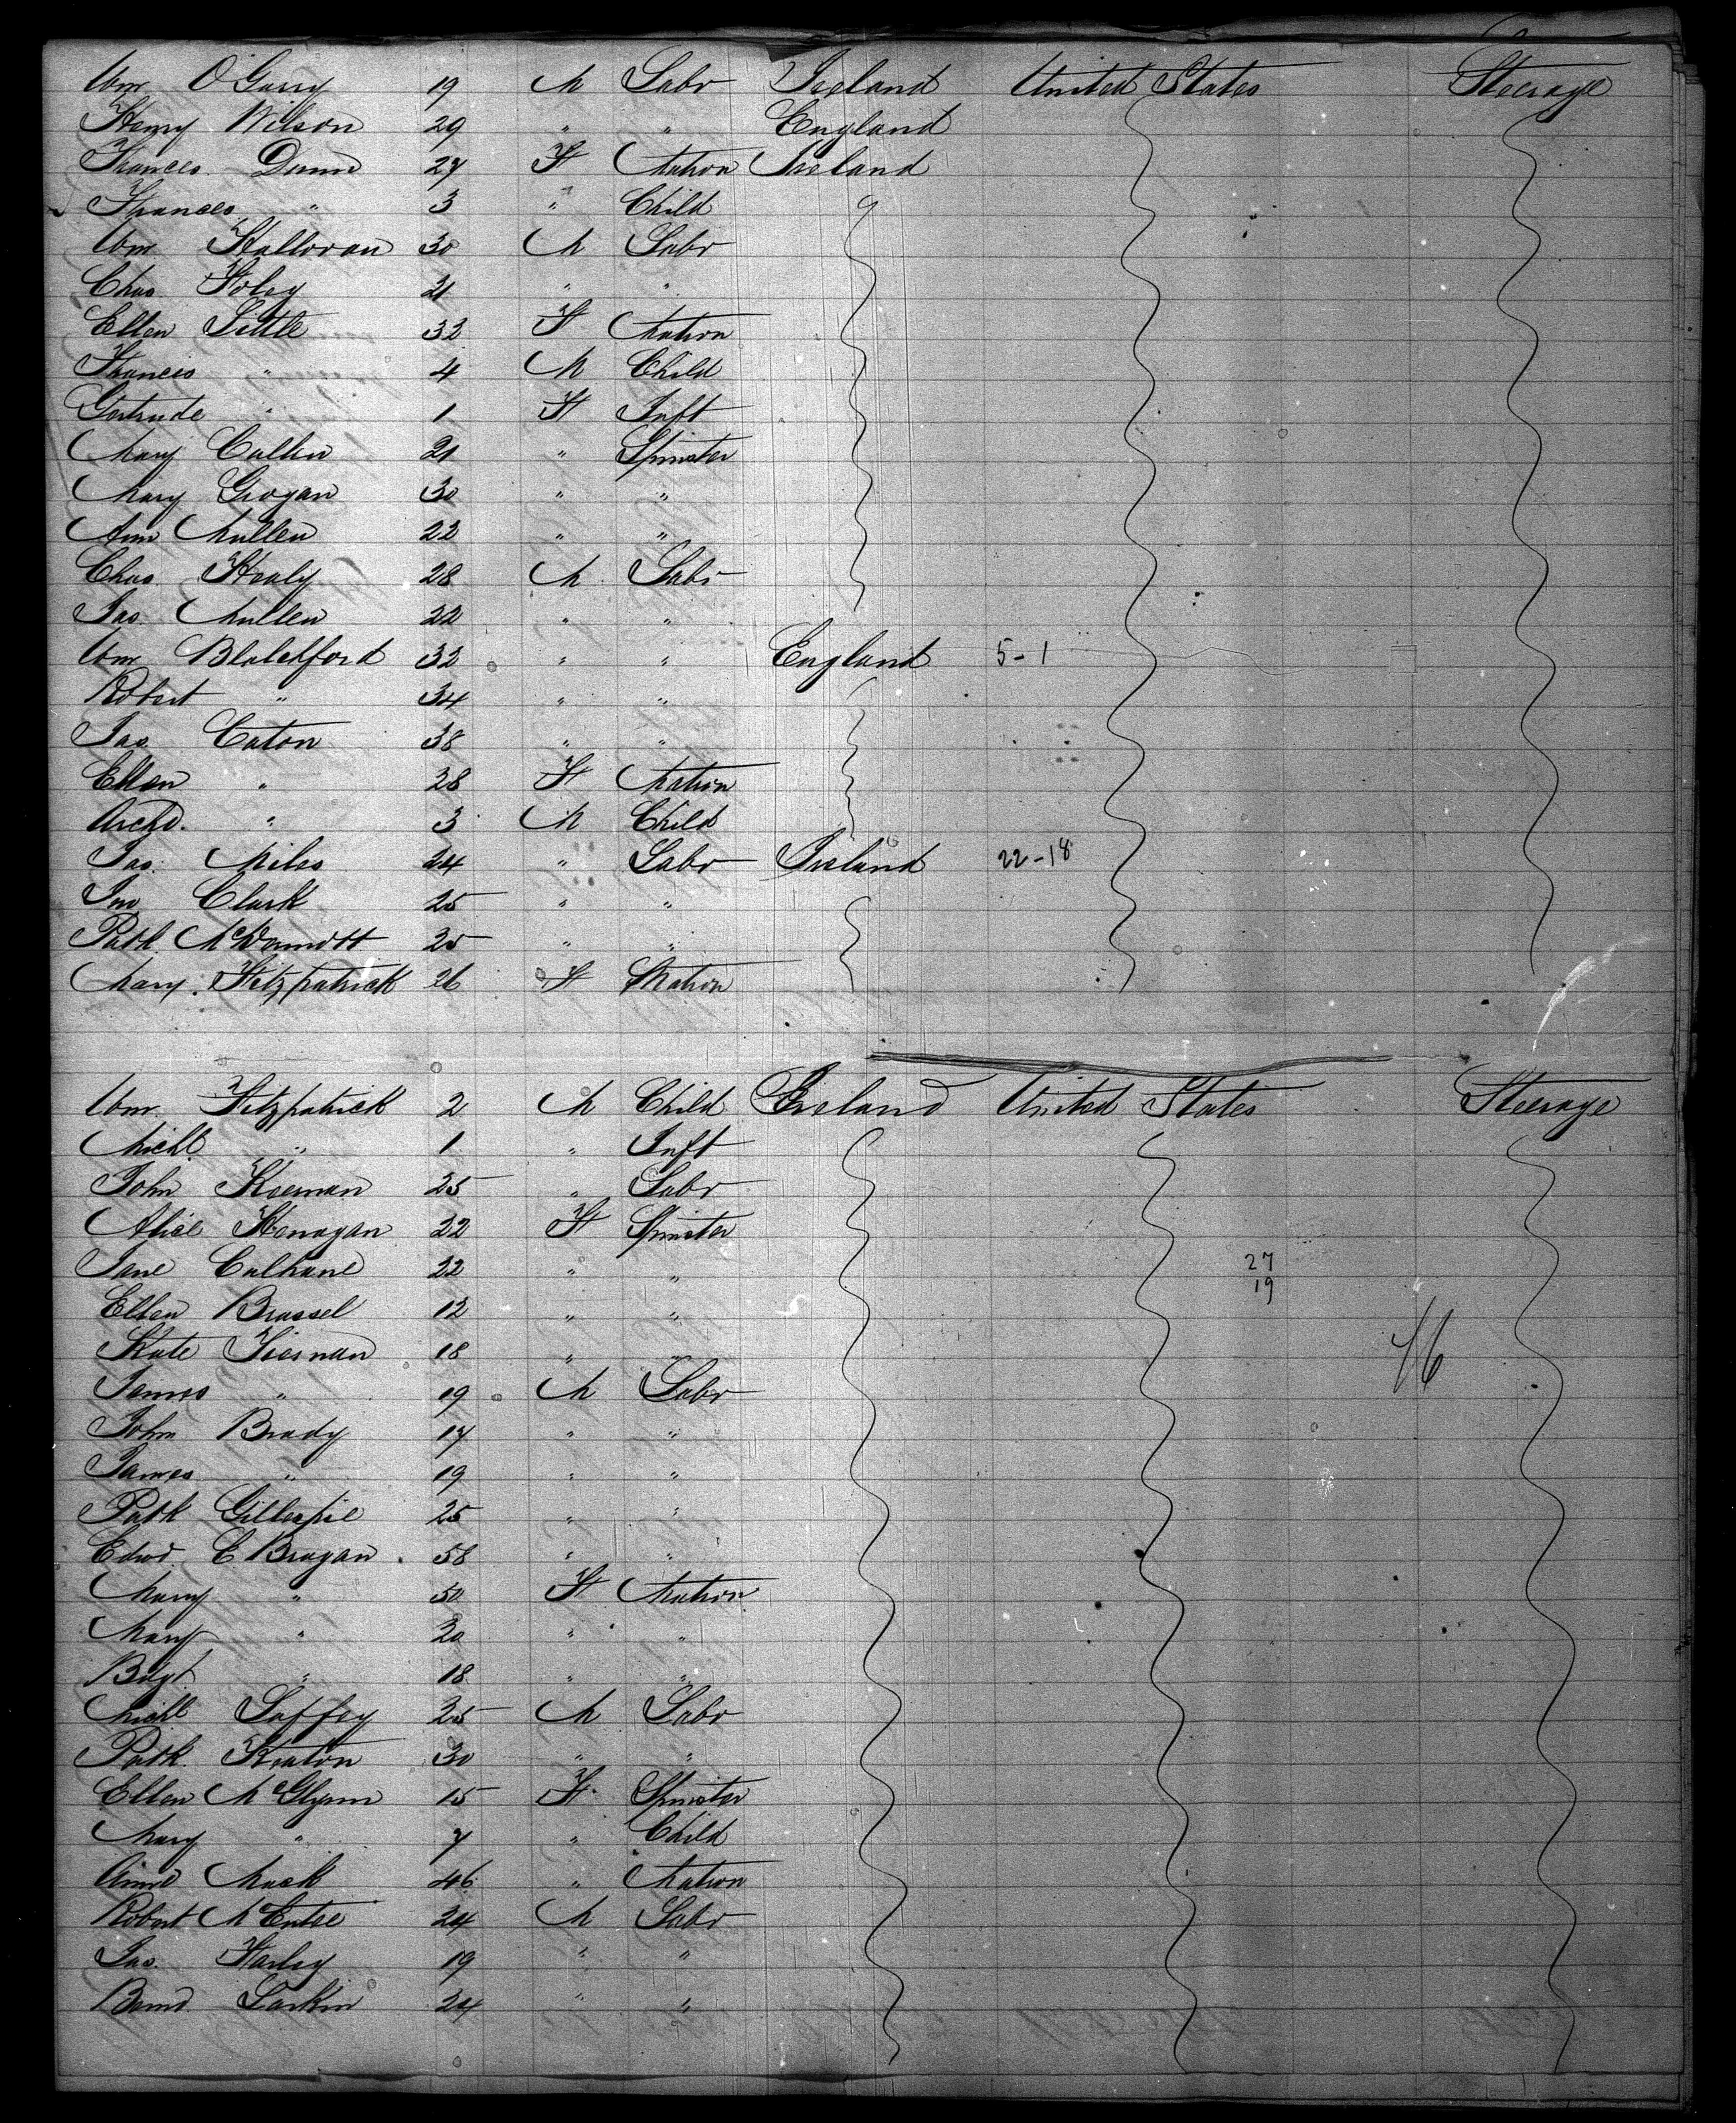 Wm O'Garry 19 M Labr Ireland United States Steerage
Henry Wilson 29 " " England
Frances Dunn 27 F Matron Ireland
Frances " 3 " Child
Wm Halloran 30 M Labr
Chas Foley 21 " "
Ellen Little 32 F Matron
Francis " 4 M Child
Gertrude " 1 F Inft
Mary Cullen 21 " Spinster
Mary Grogan 30 " "
Ann Mullen 22 " "
Chas Healy 28 M Labr
Jas. Mullen 22 " "
Wm Blatchford 32 " " England 5-1
Robert " 34 " "
Jas Caton 38 " "
Ellen " 28 F Matron
Archd. " 3 M Child
Jas. Miles 24 " Labr Ireland 22-18
Jno Clark 25 " "
Patk McDermott 25 " "
Mary Fitzpatrick 26 F Matron
Wm Fitzpatrick 2 M Child Ireland United States Steerage
Michl. " 1 " Inft
John Keenan 25 " Labr
Alice Henagan 22 F Spinster
Jane Culhane 22 " " 27
19
Ellen Brassel 12 " "
Kate Tiernan 18 " "
James " 19 M Labr
John Brady 17 " "
James " 19 " "
Patk Gillespie 25 " "
Edwd C Brogan 58 " "
Mary " 50 F Matron
Mary " 20 " "
Bdgt. " 18 " "
Michl Laffey 25 M Labr
Patk. Keaton 30 " "
Ellen McGlynn 15 F Spinster
Mary " 7 " Child
Anne Mack 46 " Matron
Robert McEntee 24 M Labr
Jas. Farley 19 " "
Bernd Larkin 24 " "